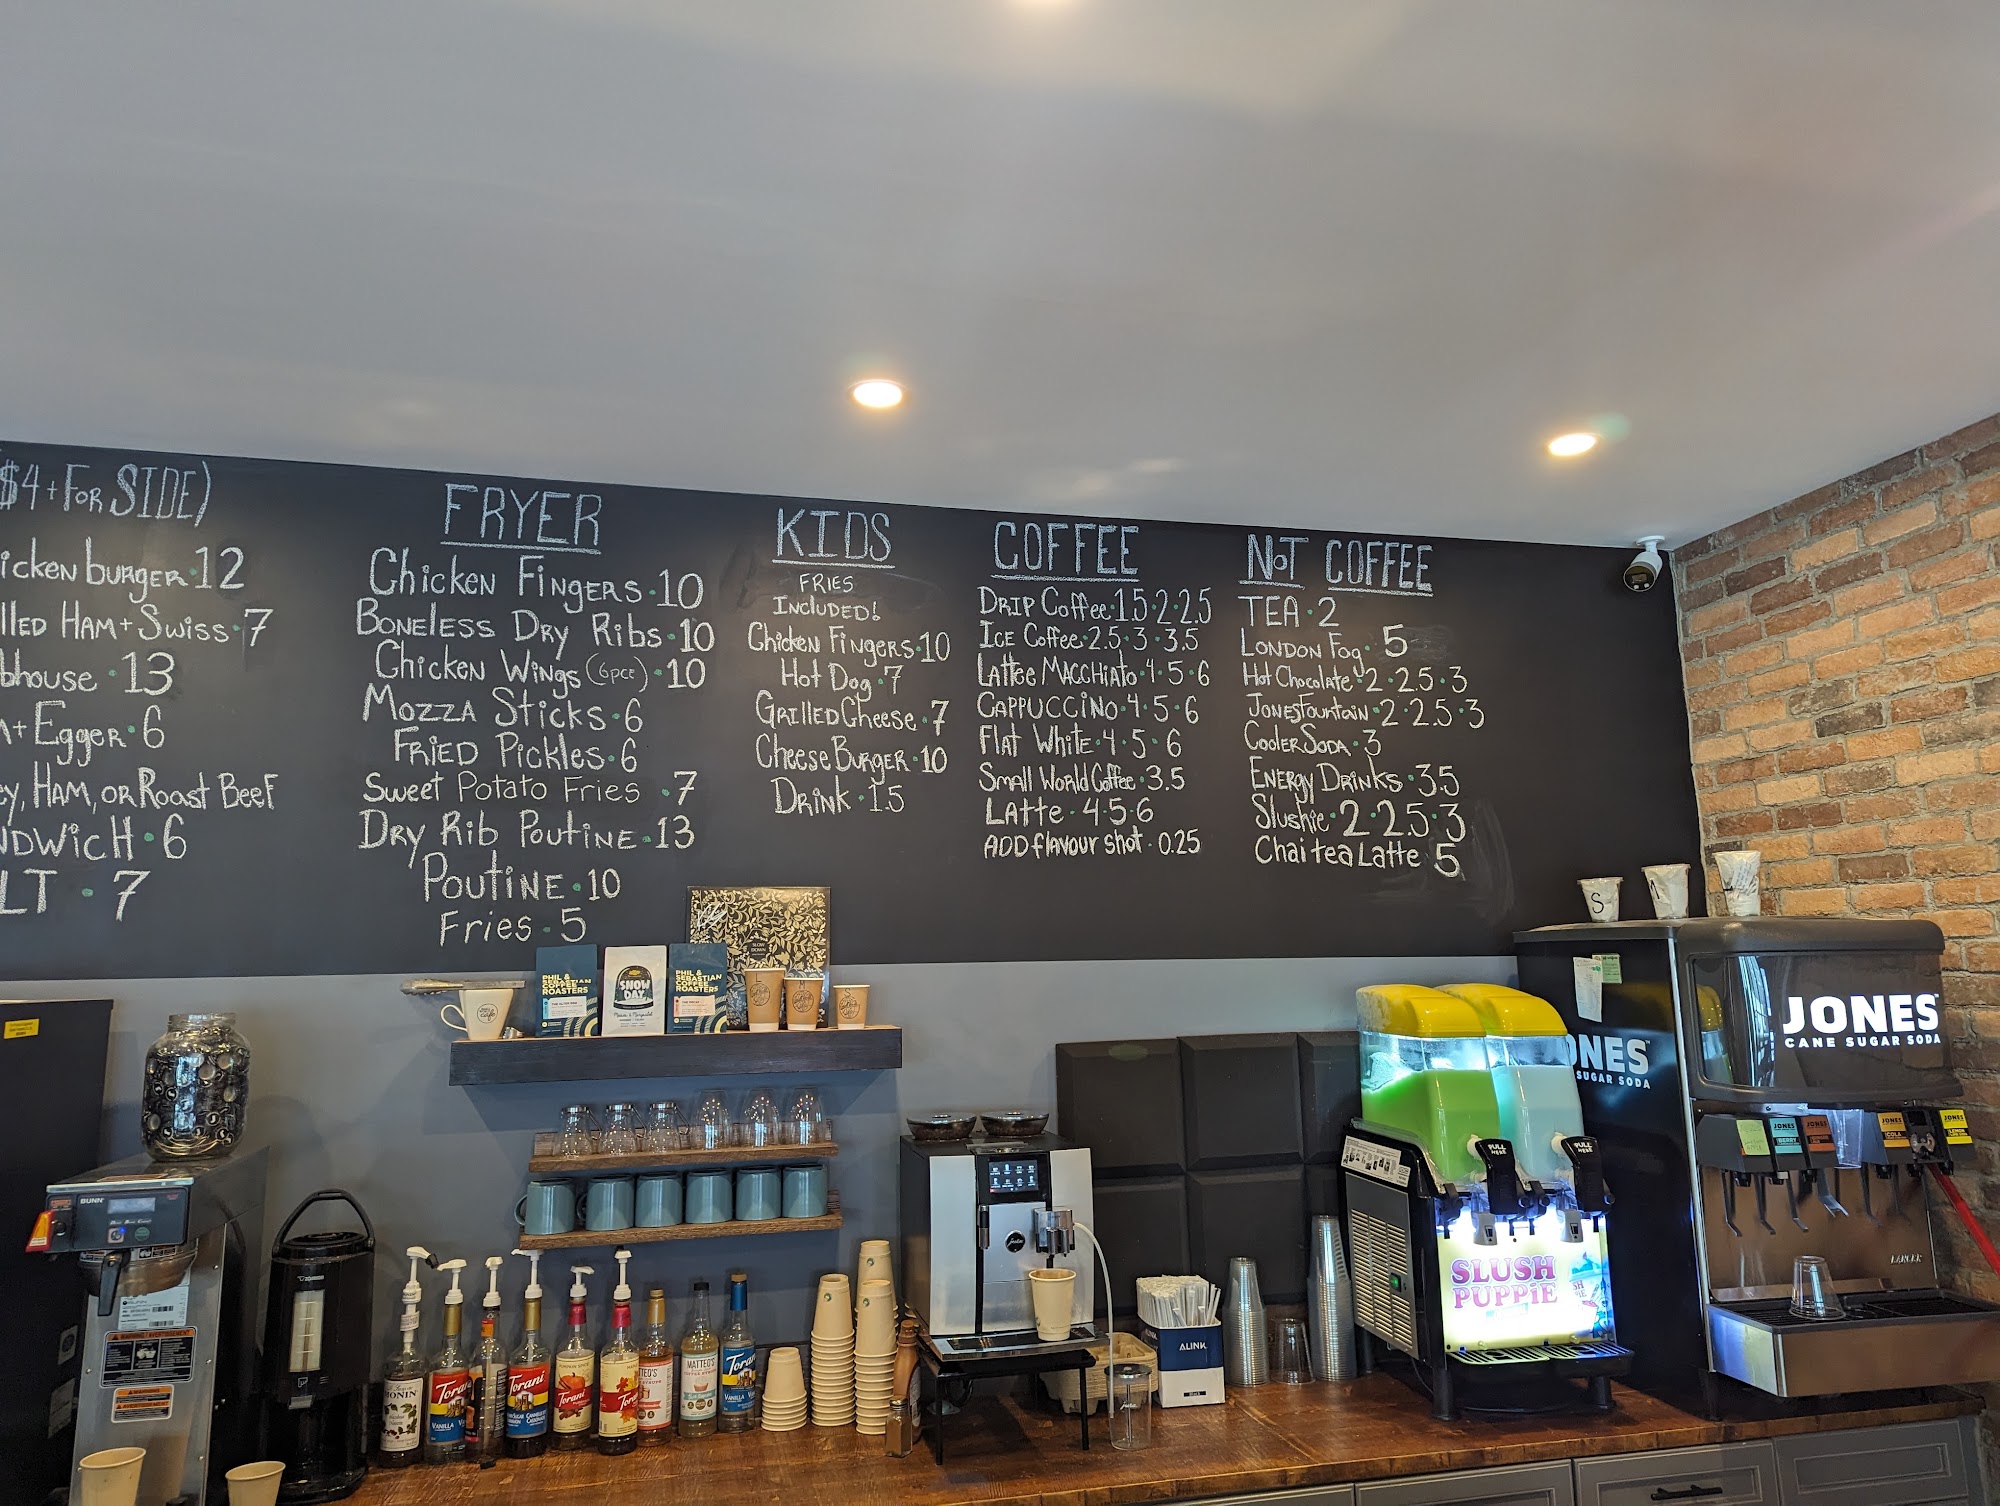 ($4+FOR SIDE)
icken burger · 12
lled HAM + Swiss · 7
bhouse · 13
+ Egger · 6
ey, HAM, OR Roast Beef
NDWICH · 6
LT · 7
FRYER
Chicken Fingers · 10
Boneless Dry Ribs · 10
Chicken Wings (6pce) · 10
Mozza Sticks · 6
Fried Pickles · 6
Sweet Potato Fries · 7
Dry Rib Poutine · 13
Poutine · 10
Fries · 5
KIDS
FRIES
INCLUDED!
Chicken Fingers · 10
Hot Dog · 7
Grilled Cheese · 7
Cheese Burger · 10
Drink · 1.5
COFFEE
Drip Coffee · 1.5 · 2 · 2.5
Ice Coffee · 2.5 · 3 · 3.5
Lattee Macchiato · 4 · 5 · 6
Cappuccino · 4 · 5 · 6
Flat White · 4 · 5 · 6
Small World Coffee · 3.5
Latte · 4 · 5 · 6
ADD flavour shot · 0.25
NOT COFFEE
TEA · 2
London Fog · 5
Hot Chocolate · 2 · 2.5 · 3
Jones Fountain · 2 · 2.5 · 3
Cooler Soda · 3
Energy Drinks · 3.5
Slushie · 2 · 2.5 · 3
Chai tea Latte 5
PHIL &
SEBASTIAN
COFFEE
ROASTERS
SNOW
DAY
PHIL &
SEBASTIAN
COFFEE
ROASTERS
SLOW
DOWN
café
S
M
JONES
CANE SUGAR SODA
ONES
SUGAR SODA
JONES
BERRY
JONES
JONES
COLA
JONES
PULL
HERE
PULL
HERE
SLUSH
PUPPiE
LANCER
BUNN
WARNING
jura
ALINK
MONIN
Torani
VANILLA
Torani
Torani
Torani
MATTEO'S
Torani
VANILLA